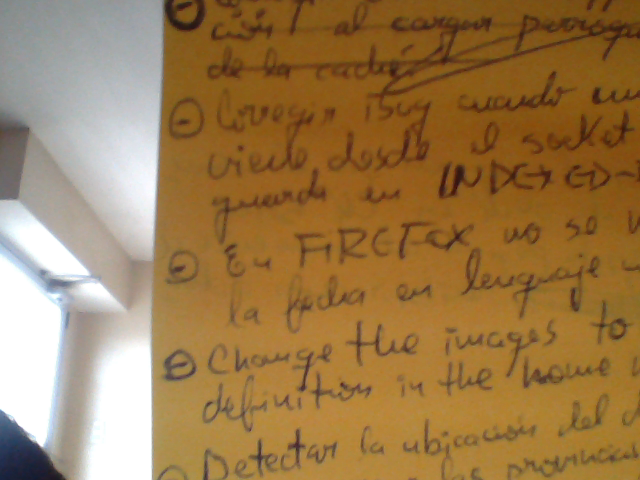 ción al cargar
de la caché.
Corregir bug cuando
viene desde el socket
guarda en INDEXED-
En FIREFOX no se
la fecha en lenguaje
Change the images to
definition in the home
Detectar la ubicación del
las provincias